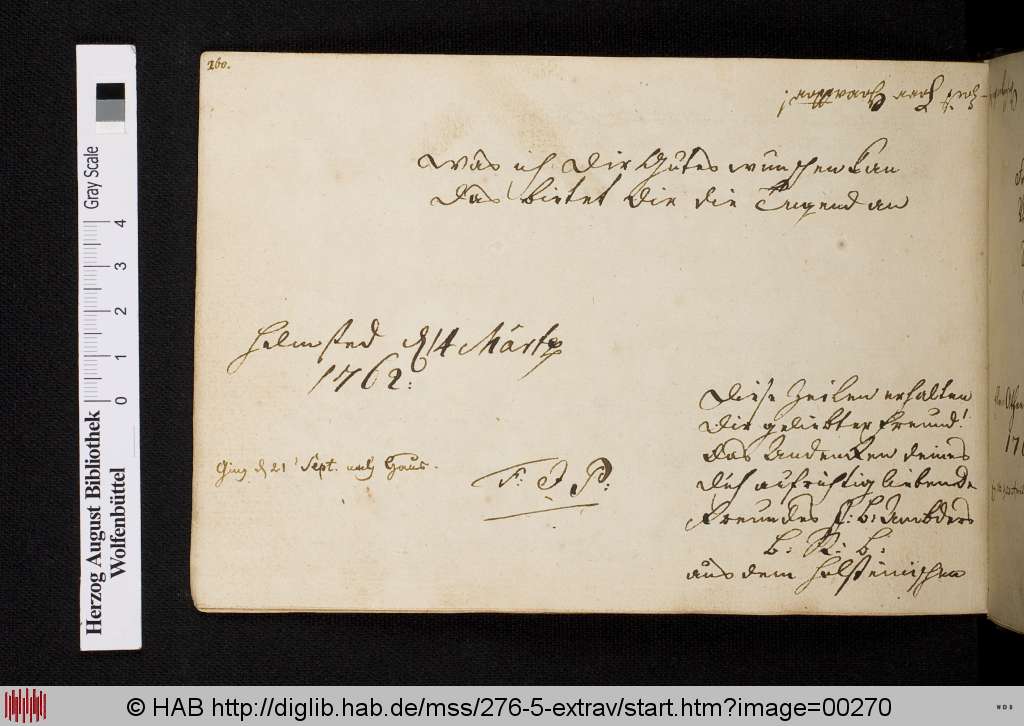 260.
Was ich Dir Gutes wünschen kan
Das bietet Dir die Tugend an
Helmsted d 14 Märtz
1762:
Ging d 21 Sept. nach Haus.
F: J P:
Diese Zeilen erhalten
Dir geliebter Freund!
das Andencken deines
Dich aufrichtig liebende
Freundes
aus dem Holsteinischen
Herzog August Bibliothek
Wolfenbüttel
Gray Scale
0 1 2 3 4
© HAB http://diglib.hab.de/mss/276-5-extrav/start.htm?image=00270